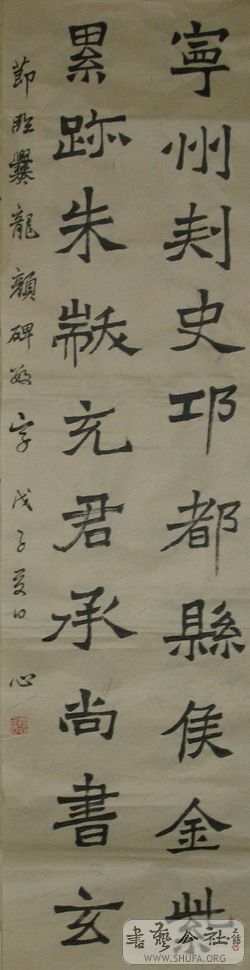 寧州刾史邛都縣侯金紫
累跡朱黻充君承尚書玄
節臨爨龍顏碑數字 戊子夏日 心
書藝公社
WWW.SHUFA.ORG